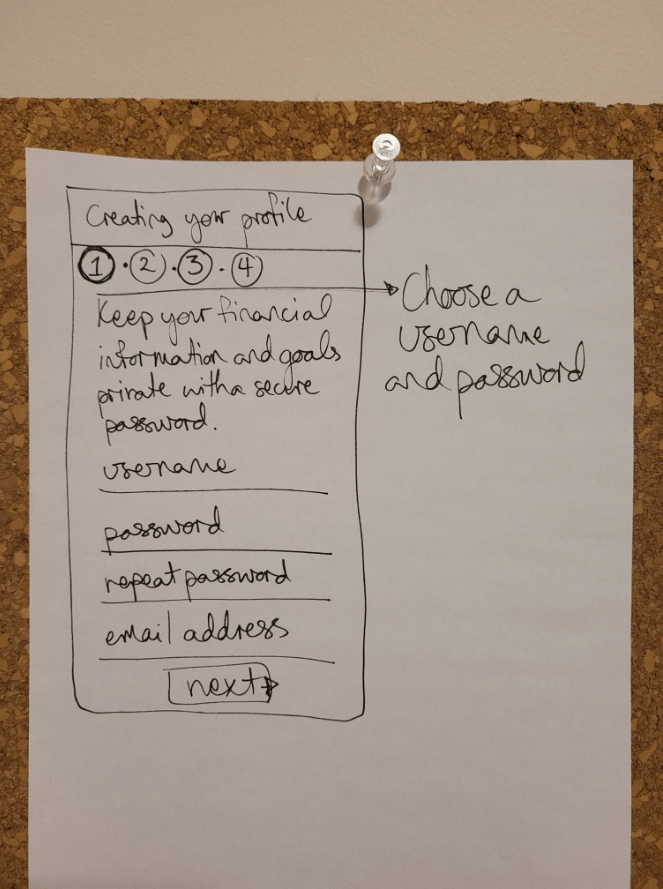 Creating your profile
1 · 2 · 3 · 4
Keep your financial
information and goals
private with a secure
password.
username
password
repeat password
email address
next
Choose a
username
and password